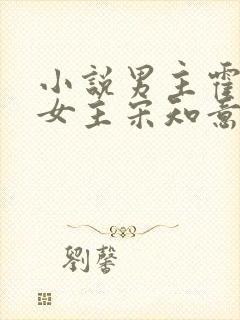 小說男主霍
女主宋知意
劉馨